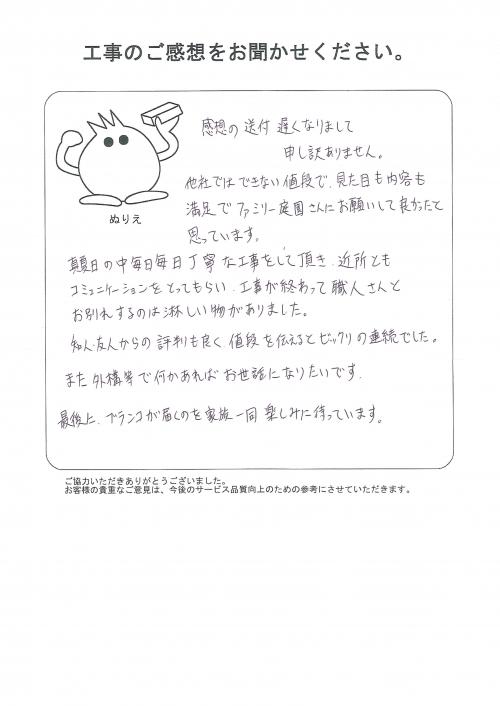 工事のご感想をお聞かせください。
感想の送付 遅くなりまして
申し訳ありません。
他社ではできない値段で、見た目も内容も
満足でファミリー庭園さんにお願いして良かったと
思っています。
ぬりえ
真夏日の中毎日毎日丁寧な工事をして頂き、近所とも
コミュニケーションをとってもらい、工事が終わって職人さんと
お別れするのは淋しい物がありました。
知人・友人からの評判も良く、値段を伝えるとビックリの連続でした。
また外構等で何かあればお世話になりたいです。
最後に、ブランコが届くのを家族一同楽しみに待っています。
ご協力いただきありがとうございました。
お客様の貴重なご意見は、今後のサービス品質向上のための参考にさせていただきます。